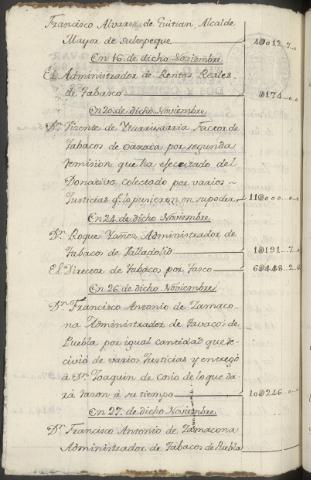 Francisco Alvarez de Guitian Alcalde
Mayor de Sultepeque 10012.7.
En 16 de dicho Noviembre
El Administrador de Rentas Reales
de Tabasco 0174..
En 20 de dicho Noviembre
Dn. Vicente de Factor de
Tabacos de Oaxaca por segunda
remision que ha efectuado del
Donativo colectado por varios
Justicias q. lo pusieron en su poder 110000..
En 24 de dicho Noviembre
Dn. Roque Yañez Administrador de
Tabaco de Valladolid 10191.7.
El Director de Tabacos por Justo 60448.2.
En 26 de dicho Noviembre
Dn. Francisco Antonio de Zamaco
na Administrador de Tavacos de
Puebla por igual cantidad que re
civio de varios Justicias y entregó
à Dn. Joaquin de Cosio de lo que da
rà razon à su tiempo 10246..
En 27 de dicho Noviembre
Dn. Francisco Antonio de Zamacona
Administrador de Tabacos de Puebla